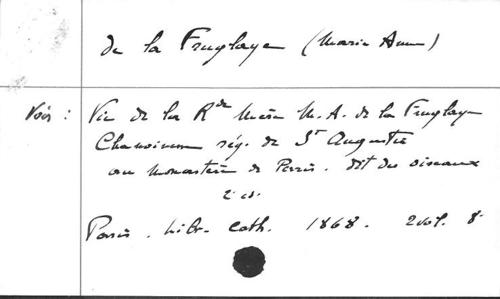 de la Fruglaye (Marie Anne)
Voir : Vie de la Rde Mère M. A. de la Fruglaye
Chanoinesse rég. de St Augustin
au monastère de Paris. dit des oiseaux
2e éd.
Paris. libr. cath. 1868. 2 vol. 8°